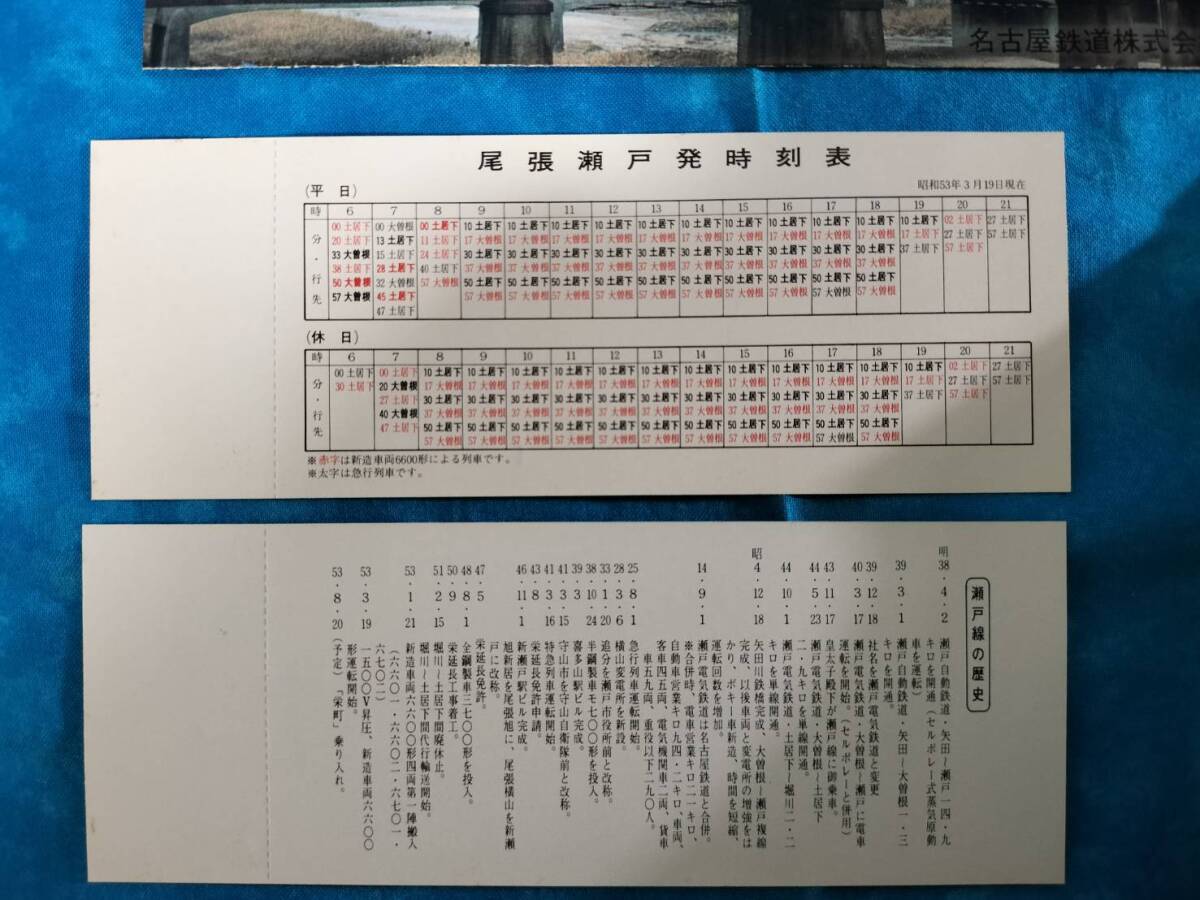 名古屋鉄道株式会
尾張瀬戸発時刻表
昭和53年3月19日現在
(平 日)
時 6 7 8 9 10 11 12 13 14 15 16 17 18 19 20 21
分・行先
00 土居下 00 大曽根 00 土居下 10 土居下 10 土居下 10 土居下 10 土居下 10 土居下 10 土居下 10 土居下 10 土居下 10 土居下 10 土居下 10 土居下 02 土居下 27 土居下
20 土居下 13 土居下 11 土居下 17 大曽根 17 大曽根 17 大曽根 17 大曽根 17 大曽根 17 大曽根 17 大曽根 17 大曽根 17 大曽根 17 大曽根 17 土居下 27 土居下 57 土居下
33 大曽根 15 土居下 24 土居下 30 土居下 30 土居下 30 土居下 30 土居下 30 土居下 30 土居下 30 土居下 30 土居下 30 土居下 30 土居下 37 土居下 57 土居下
38 土居下 28 土居下 40 土居下 37 大曽根 37 大曽根 37 大曽根 37 大曽根 37 大曽根 37 大曽根 37 大曽根 37 大曽根 37 大曽根 37 大曽根
50 大曽根 32 大曽根 57 大曽根 50 土居下 50 土居下 50 土居下 50 土居下 50 土居下 50 土居下 50 土居下 50 土居下 50 土居下 50 土居下
57 大曽根 45 土居下 57 大曽根 57 大曽根 57 大曽根 57 大曽根 57 大曽根 57 大曽根 57 大曽根 57 大曽根 57 大曽根 57 大曽根
47 土居下
(休 日)
時 6 7 8 9 10 11 12 13 14 15 16 17 18 19 20 21
分・行先
00 土居下 00 土居下 10 土居下 10 土居下 10 土居下 10 土居下 10 土居下 10 土居下 10 土居下 10 土居下 10 土居下 10 土居下 10 土居下 10 土居下 02 土居下 27 土居下
30 土居下 20 大曽根 17 大曽根 17 大曽根 17 大曽根 17 大曽根 17 大曽根 17 大曽根 17 大曽根 17 大曽根 17 大曽根 17 大曽根 17 大曽根 17 土居下 27 土居下 57 土居下
27 土居下 30 土居下 30 土居下 30 土居下 30 土居下 30 土居下 30 土居下 30 土居下 30 土居下 30 土居下 30 土居下 30 土居下 37 土居下 57 土居下
40 大曽根 37 大曽根 37 大曽根 37 大曽根 37 大曽根 37 大曽根 37 大曽根 37 大曽根 37 大曽根 37 大曽根 37 大曽根 37 大曽根
47 土居下 50 土居下 50 土居下 50 土居下 50 土居下 50 土居下 50 土居下 50 土居下 50 土居下 50 土居下 50 土居下 50 土居下
57 大曽根 57 大曽根 57 大曽根 57 大曽根 57 大曽根 57 大曽根 57 大曽根 57 大曽根 57 大曽根 57 大曽根 57 大曽根
※赤字は新造車両6600形による列車です。
※太字は急行列車です。
瀬戸線の歴史
明38・4・2 瀬戸自動鉄道・矢田〜瀬戸一四・九
キロを開通(セルポレー式蒸気原動
車を運転)
39・3・1 瀬戸自動鉄道・矢田〜大曽根一・三
キロを開通。
39・12・18 社名を瀬戸電気鉄道と変更
40・3・17 瀬戸電気鉄道・大曽根〜瀬戸に電車
運転を開始。(セルポレーと併用)
43・11・17 皇太子殿下が瀬戸線に御乗車。
44・5・23 瀬戸電気鉄道・大曽根〜土居下
二・九キロを単線開通。
44・10・1 瀬戸電気鉄道・土居下〜堀川二・二
キロを単線開通。
昭4・12・18 矢田川鉄橋完成、大曽根〜瀬戸複線
完成、以後車両と変電所の増強をは
かり、ボギー車新造、時間を短縮、
運転回数を増加。
14・9・1 瀬戸電気鉄道は名古屋鉄道と合併。
※合併時、電車営業キロ二一キロ、
自動車営業キロ九四・二キロ、車両、
客車四五両、電気機関車二両、貨車
車五九両、重役以下二九〇人。
25・8・1 急行列車運転を開始。
28・3・6 横山変電所を新設。
33・1・20 追分を瀬戸市役所前と改称。
38・10・24 半鋼製車モ七〇〇形を投入。
39・3 喜多山駅ビル完成。
41・3・15 守山市を守山自衛隊前と改称。
41・3・16 特急列車運転開始。
43・8 栄延長免許申請。
46・11・1 新瀬戸駅ビル完成。
旭新居を尾張旭に、尾張横山を新瀬
戸に改称。
47・5 栄延長免許。
48・8・1 全鋼製車三七〇〇形を投入。
50・9 栄延長工事着工。
51・2・15 堀川〜土居下間廃休止。
堀川〜土居下間代行輸送開始。
53・1・21 新造車両六六〇〇形四両第一陣搬入
(六六〇一・六六〇二・六七〇一・
六七〇二)
53・3・19 一五〇〇V昇圧、新造車両六六〇〇
形運転開始。
53・8・20 (予定)「栄町」乗り入れ。